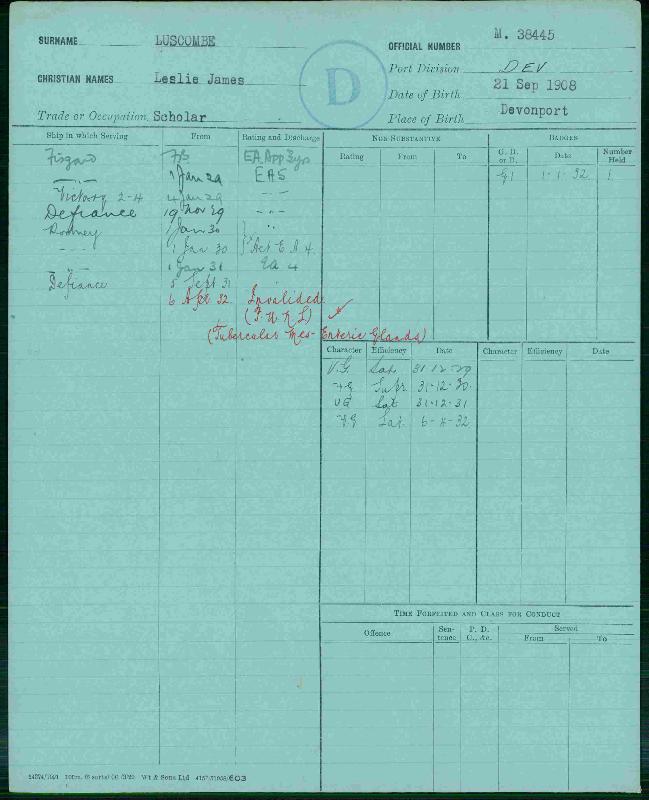 SURNAME LUSCOMBE
OFFICIAL NUMBER M. 38445
CHRISTIAN NAMES Leslie James
Port Division DEV
Date of Birth 21 Sep 1908
Trade or Occupation Scholar
Place of Birth Devonport
D
Ship in which Serving From Rating and Discharge
NON-SUBSTANTIVE
Rating From To
BADGES
G. D. or D. Date Number Held
Fisgard EA App 3 yrs
1 Jan 29 EA5
Victory 2-4 4 Jan 29
Defiance 19 Nov 29
Rodney 1 Jan 30
1 Jan 30 Act E A 4.
1 Jan 31 Ea 4
Defiance 5 Sept 31
6 Apl 32 Invalided
(Tubercular Mes-Enteric Glands)
G1 1-1-32 1
Character Efficiency Date Character Efficiency Date
V.G Sat 31.12.29
VG Supr 31-12-30
VG Sat 31-12-31
VG Sat 6-4-32
TIME FORFEITED AND CLASS FOR CONDUCT
Offence Sen-tence P. D. C., &c. Served
From To
Wt & Sons Ltd 603